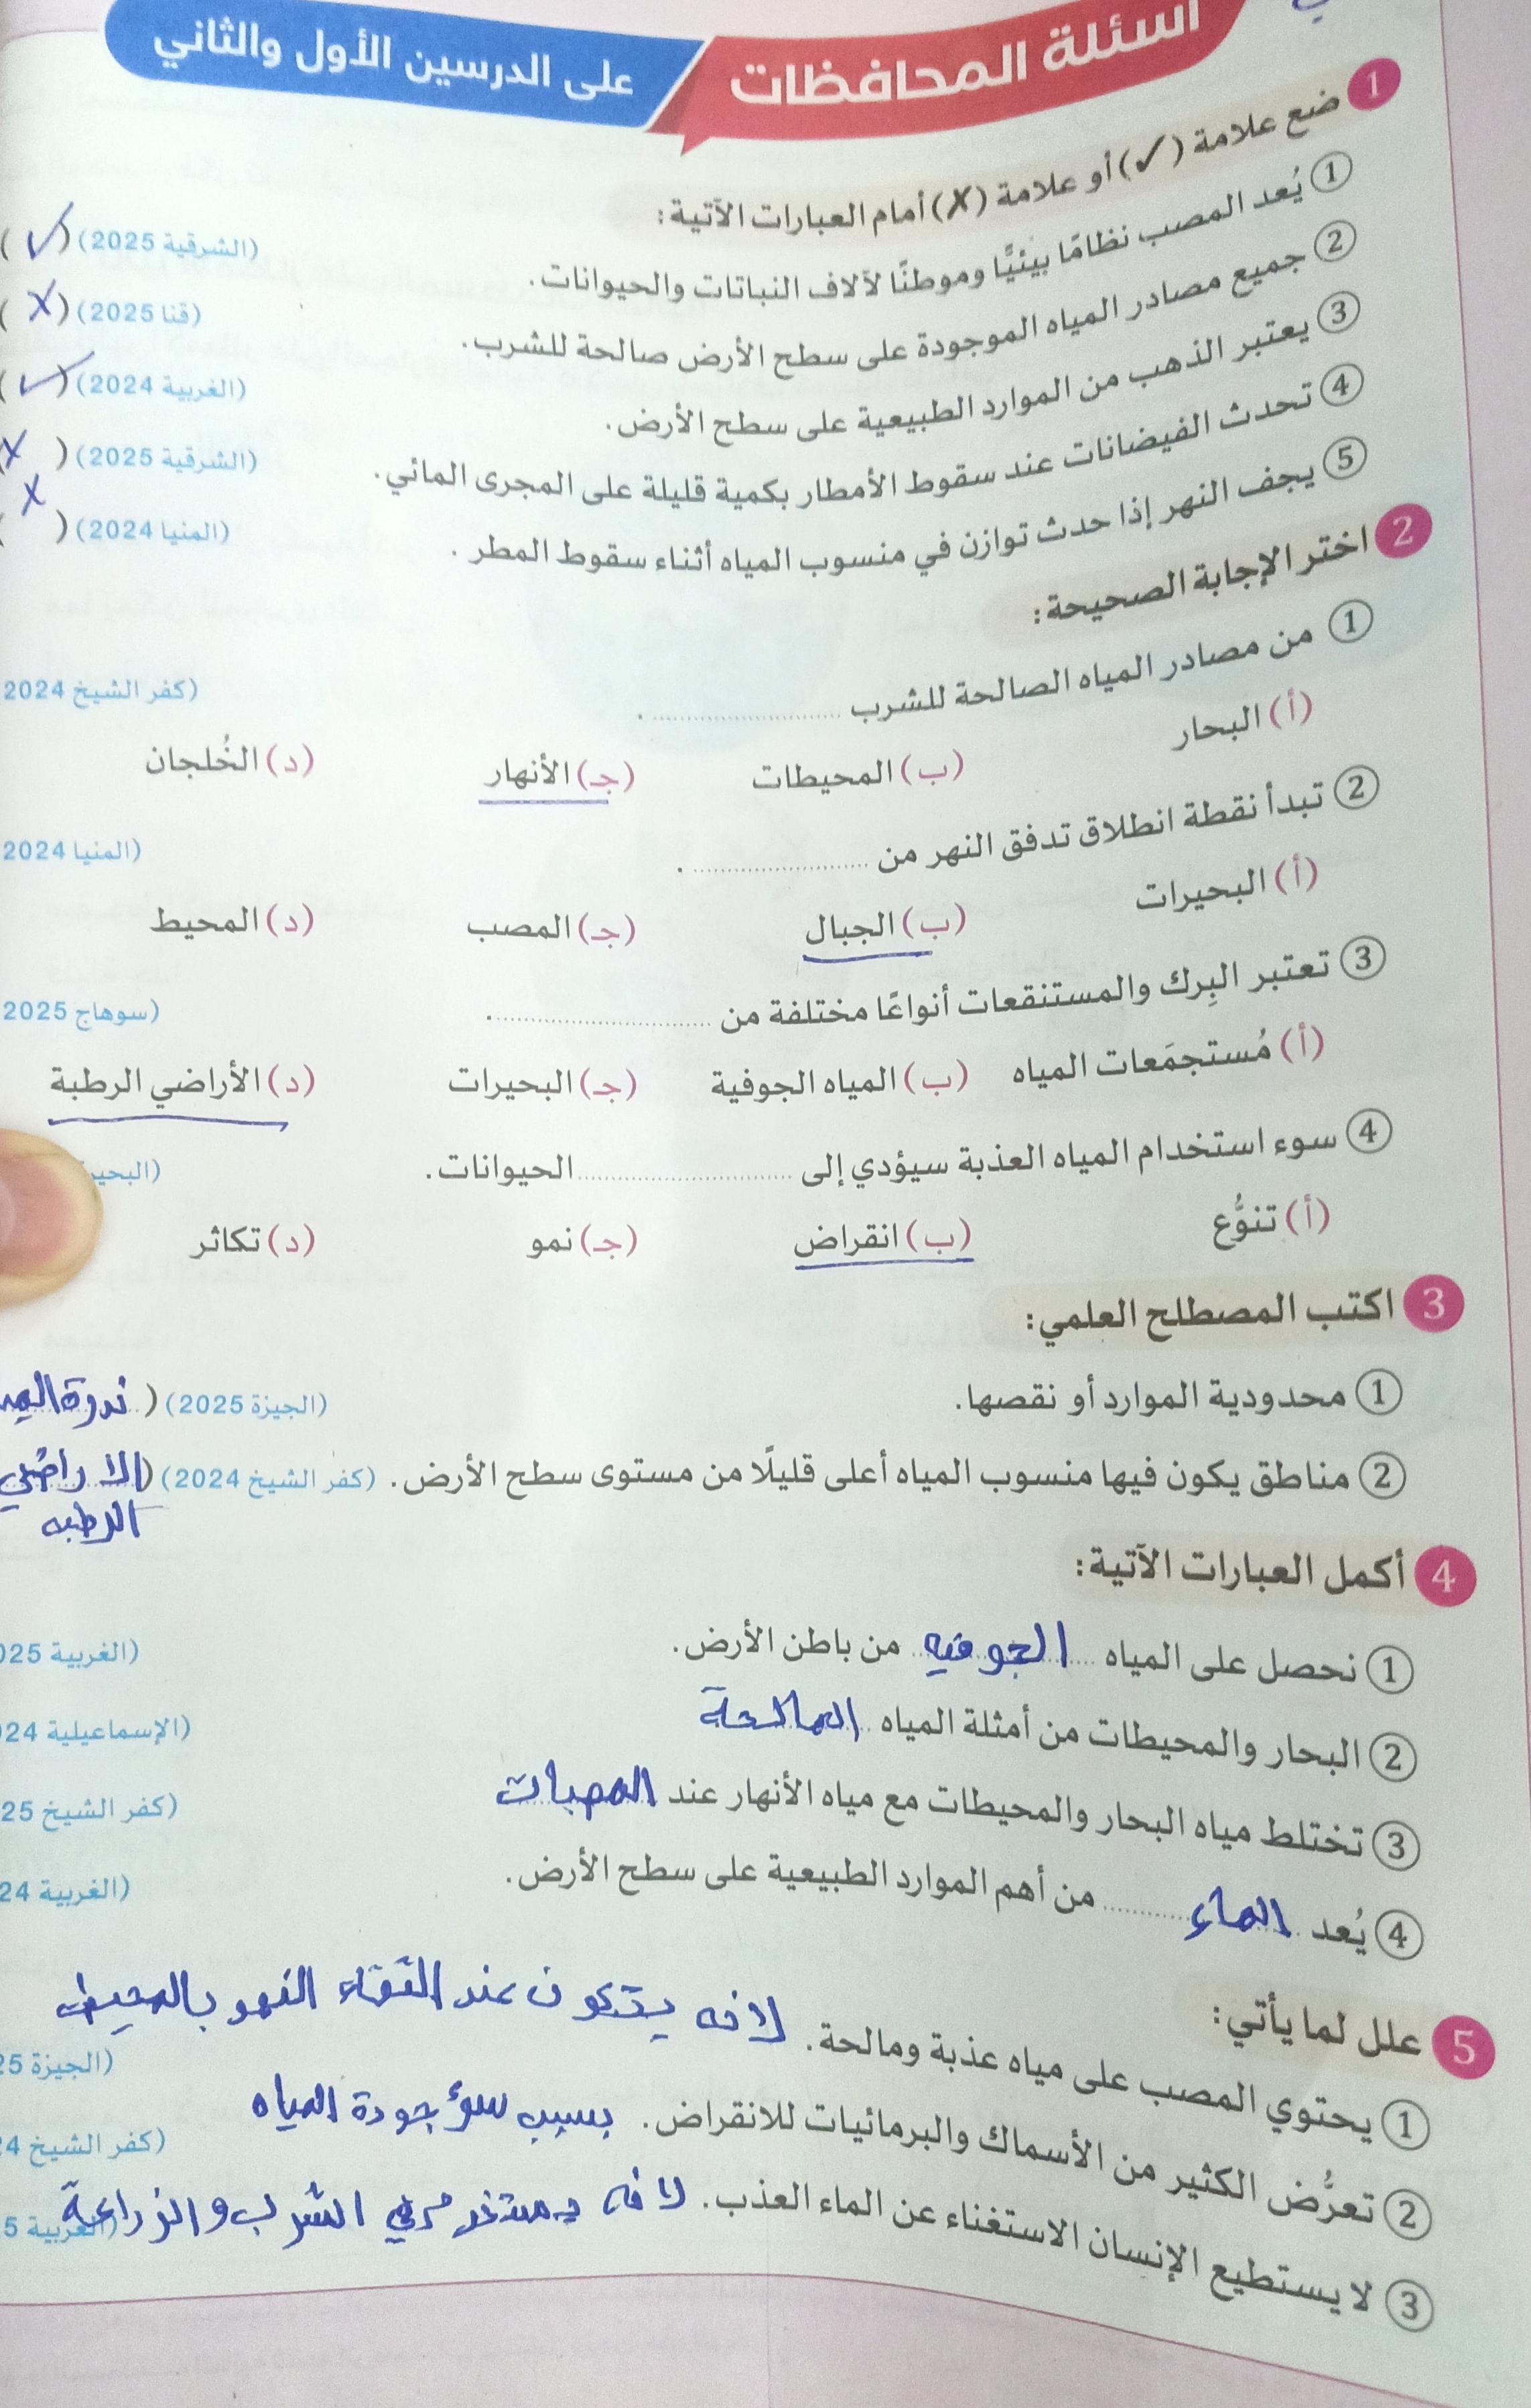 أسئلة المحافظات على الدرسين الأول والثاني
1 ضع علامة (✓) أو علامة (✗) أمام العبارات الآتية:
1 يُعد المصب نظامًا بيئيًّا وموطنًا لآلاف النباتات والحيوانات. (الشرقية 2025) (✓)
2 جميع مصادر المياه الموجودة على سطح الأرض صالحة للشرب. (قنا 2025) (X)
3 يعتبر الذهب من الموارد الطبيعية على سطح الأرض. (الغربية 2024) (✓)
4 تحدث الفيضانات عند سقوط الأمطار بكمية قليلة على المجرى المائي. (الشرقية 2025) (X
5 يجف النهر إذا حدث توازن في منسوب المياه أثناء سقوط المطر. (المنيا 2024) (X
2 اختر الإجابة الصحيحة:
1 من مصادر المياه الصالحة للشرب .................... . (كفر الشيخ 2024
(أ) البحار (ب) المحيطات (جـ) الأنهار (د) الخُلجان
2 تبدأ نقطة انطلاق تدفق النهر من .................... . (المنيا 2024
(أ) البحيرات (ب) الجبال (جـ) المصب (د) المحيط
3 تعتبر البِرك والمستنقعات أنواعًا مختلفة من .................... . (سوهاج 2025
(أ) مُستجمَعات المياه (ب) المياه الجوفية (جـ) البحيرات (د) الأراضي الرطبة
4 سوء استخدام المياه العذبة سيؤدي إلى .................... الحيوانات.
(أ) تنوُّع (ب) انقراض (جـ) نمو (د) تكاثر
3 اكتب المصطلح العلمي:
1 محدودية الموارد أو نقصها. (الجيزة 2025) ( ندرة
2 مناطق يكون فيها منسوب المياه أعلى قليلًا من مستوى سطح الأرض. (كفر الشيخ 2024) (الاراضي
الرطبه
4 أكمل العبارات الآتية:
1 نحصل على المياه الجوفيه من باطن الأرض. (الغربية 25
2 البحار والمحيطات من أمثلة المياه المالحة (الإسماعيلية 24
3 تختلط مياه البحار والمحيطات مع مياه الأنهار عند المصبات (كفر الشيخ 25
4 يُعد الماء من أهم الموارد الطبيعية على سطح الأرض. (الغربية 24
5 علل لما يأتي:
1 يحتوي المصب على مياه عذبة ومالحة. لانه يتكون عند التقاء النهر بالمحيط (الجيزة 25
2 تعرُّض الكثير من الأسماك والبرمائيات للانقراض. بسبب سوء جودة المياه (كفر الشيخ 4
3 لا يستطيع الإنسان الاستغناء عن الماء العذب. لانه يستخدم في الشرب والزراعة (الغربية 5